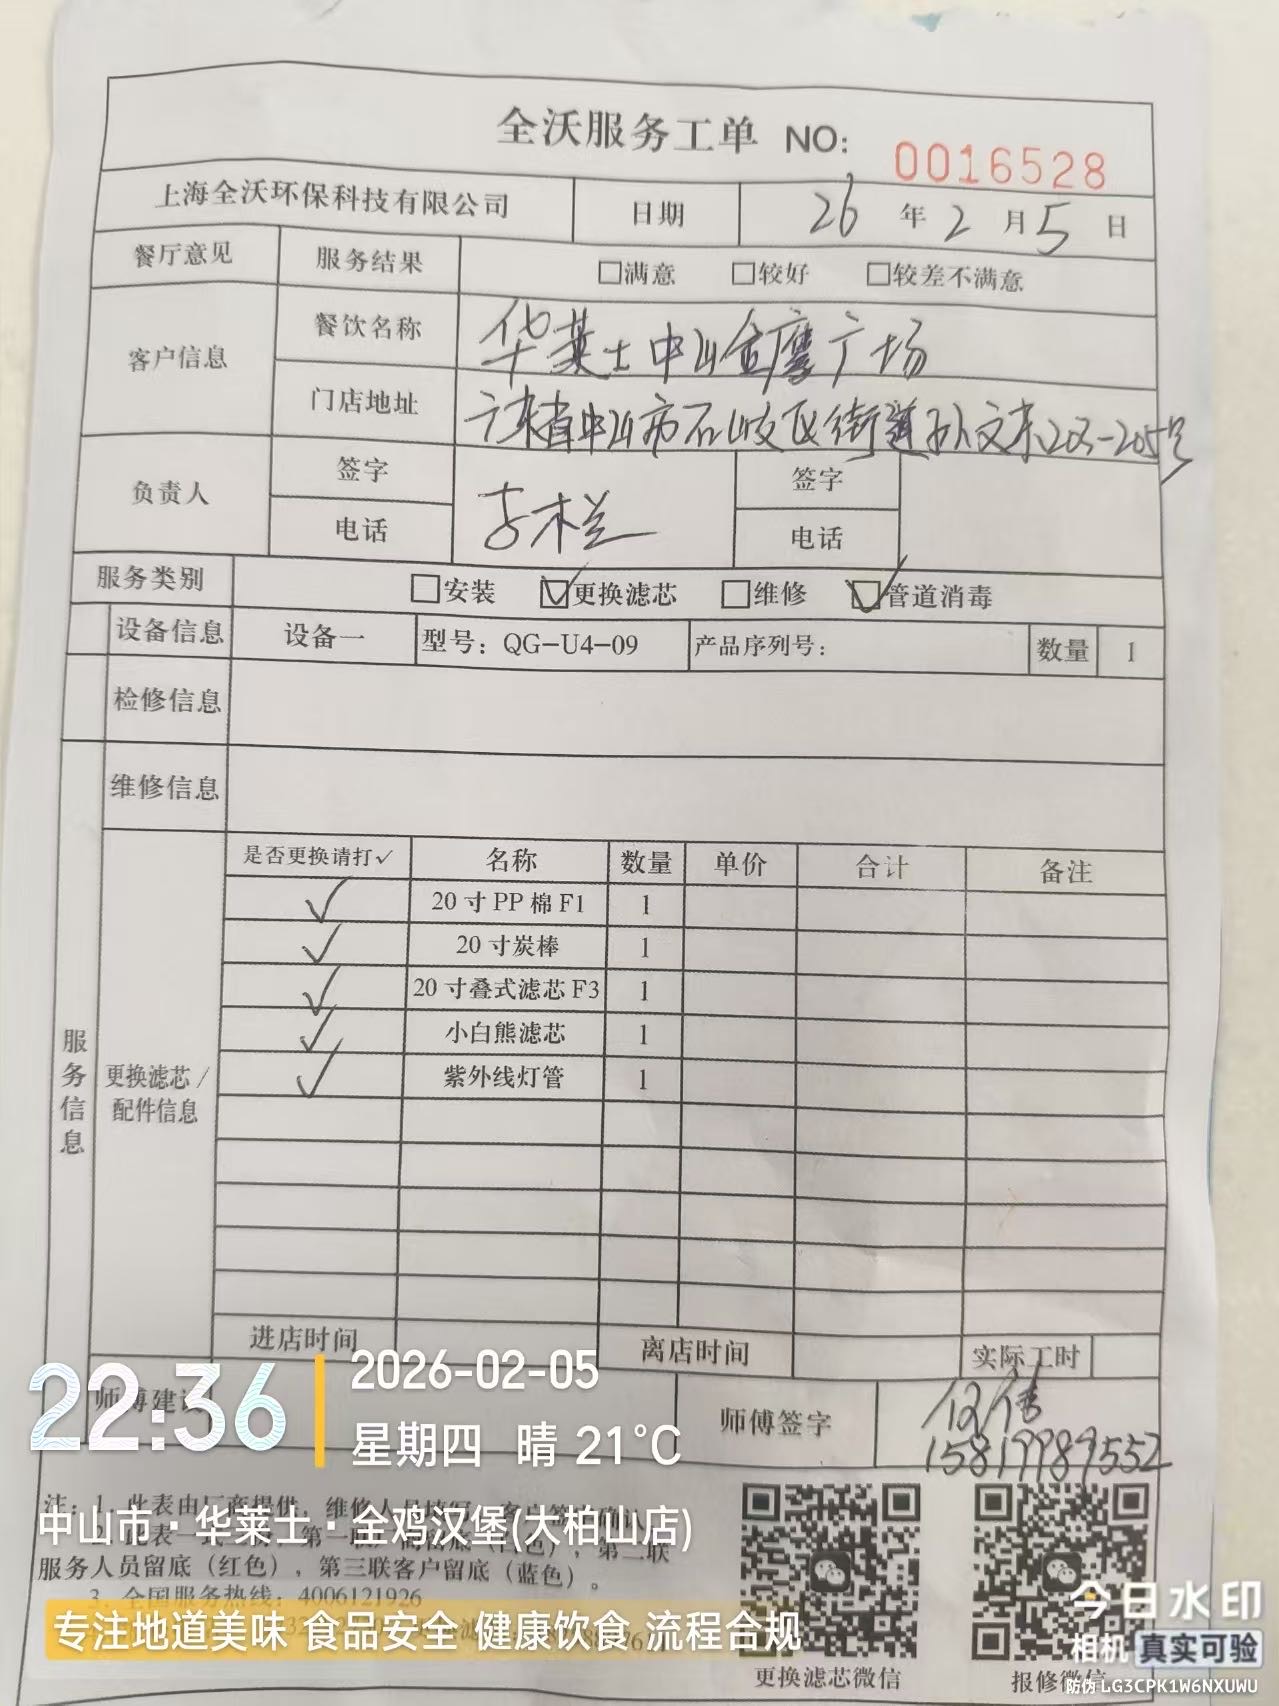 全沃服务工单 NO: 0016528
上海全沃环保科技有限公司 日期 26 年 2 月 5 日
餐厅意见 服务结果 □满意 □较好 □较差不满意
客户信息 餐饮名称 华莱士中山金鹰广场
门店地址 广东省中山市石岐区街道孙文东203-205号
负责人 签字 签字
电话 李木兰 电话
服务类别 □安装 ☑更换滤芯 □维修 ☑管道消毒
设备信息 设备一 型号: QG-U4-09 产品序列号: 数量 1
检修信息
维修信息
是否更换请打✓ 名称 数量 单价 合计 备注
✓ 20寸PP棉F1 1
✓ 20寸炭棒 1
✓ 20寸叠式滤芯F3 1
✓ 小白熊滤芯 1
✓ 紫外线灯管 1
服务信息
更换滤芯/
配件信息
进店时间 离店时间 实际工时
师傅建议 师傅签字
15819989552
22:36 2026-02-05
星期四 晴 21°C
注: 1. 此表由厂商提供, 维修人员填写,
中山市·华莱士·全鸡汉堡(大柏山店)
服务人员留底(红色), 第三联客户留底(蓝色)。
3. 全国服务热线: 4006121926
专注地道美味 食品安全 健康饮食 流程合规
更换滤芯微信 报修微信
今日水印
相机 真实可验
防伪 LG3CPK1W6NXUWU